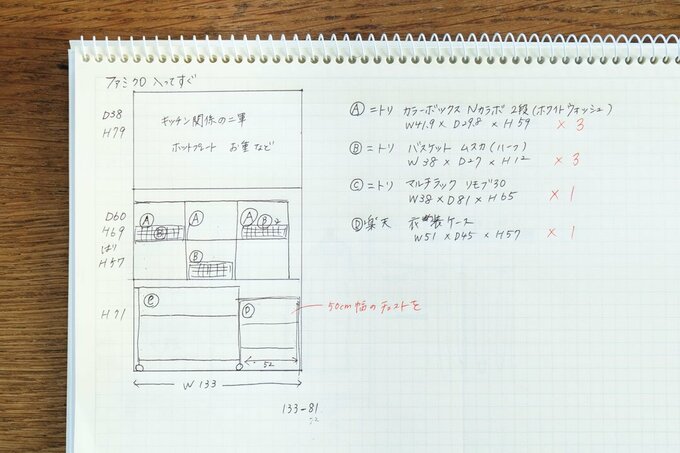 ファミクロ 入ってすぐ
D38
H79
キッチン関係の二軍
ホットプレート お釜など
D60
H69
はり
H57
A
A
A
B
B
B
H71
C
D
50cm幅のチェストを
52
W 133
133-81
52
Ⓐ ニトリ カラーボックス Nカラボ 2段(ホワイトウォッシュ)
W41.9 × D29.8 × H59 ×3
Ⓑ ニトリ バスケット ムスカ(ハーフ)
W38 × D27 × H12 ×3
Ⓒ ニトリ マルチラック リモブ30
W38 × D81 × H65 ×1
Ⓓ 楽天 衣装ケース
W51 × D45 × H57 ×1